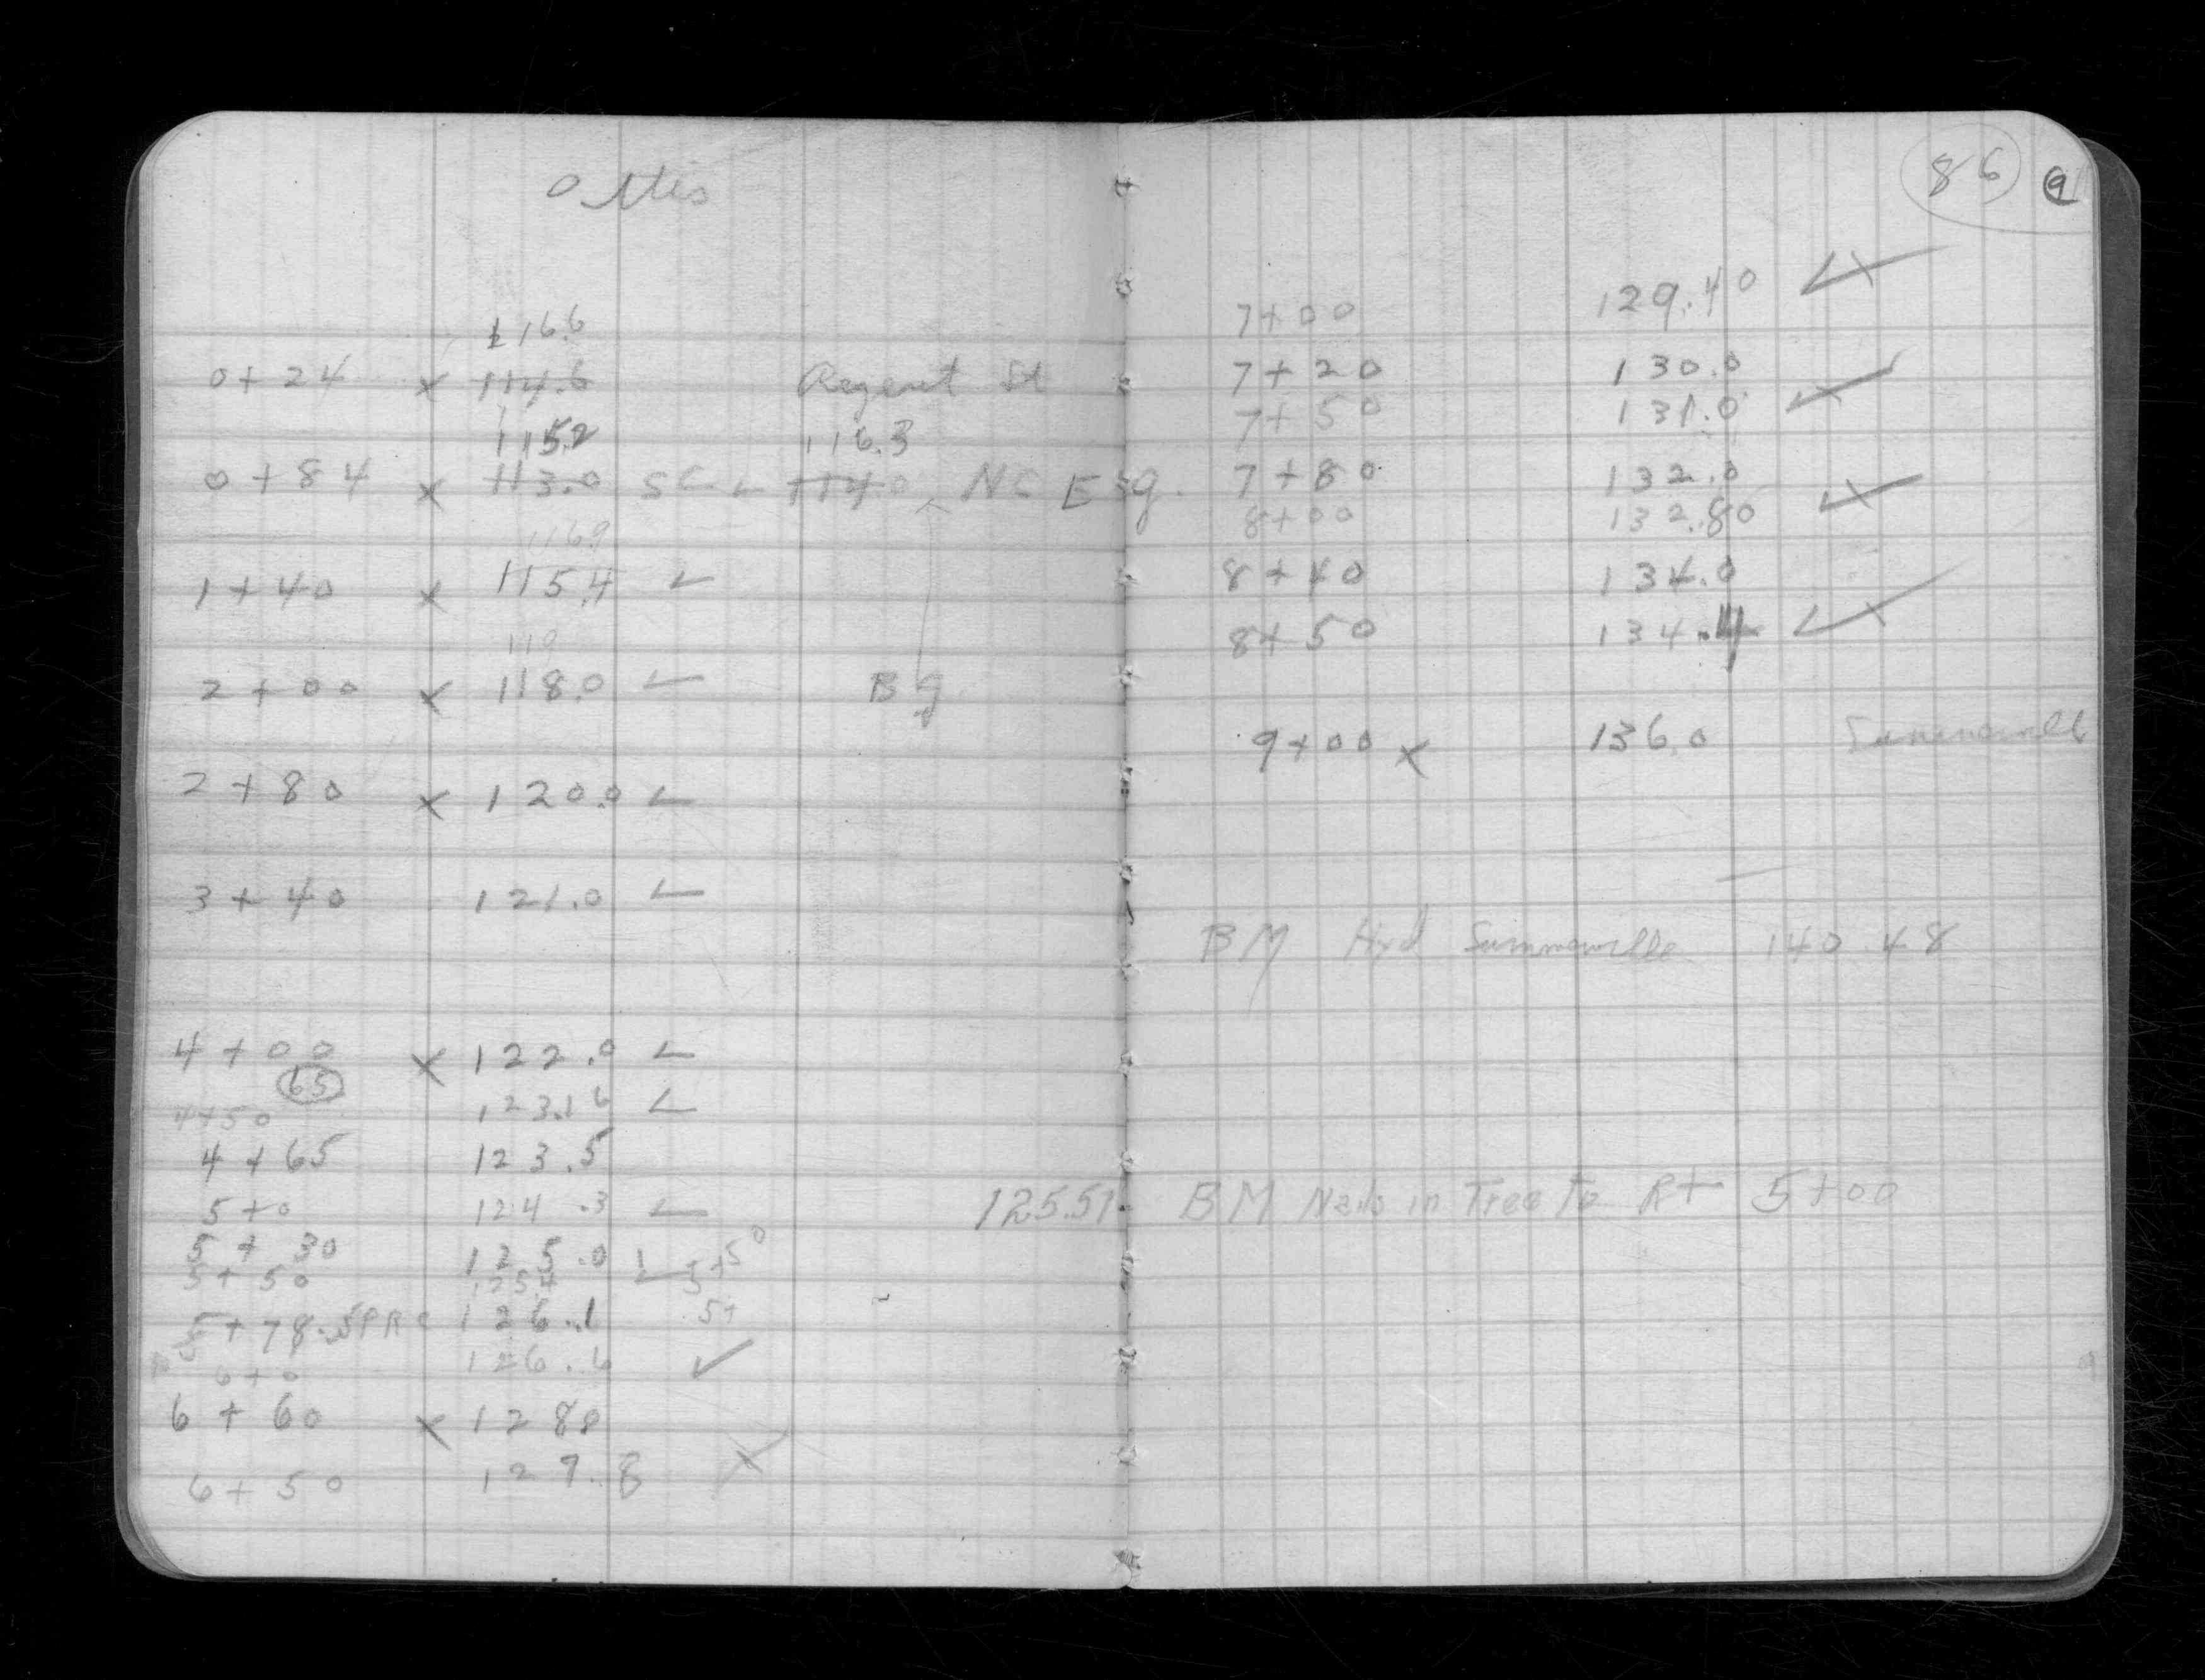 Ottis
116.6
0+24 x 114.6 Regent St
115.2 116.3
0+84 x 113.0 SC 114.0 NC E Bg.
116.9
1+40 x 115.4 ✓
119
2+00 x 118.0 ✓ Bg
2+80 x 120.0 ✓
3+40 121.0 ✓
4+00 x 122.0 ✓
65
4+50 123.16 ✓
4+65 123.5
5+0 124.3 ✓
5+30 125.0
5+50 125.4 ✓ 5+50
5+78 126.1 5+
6+0 126.6 ✓
6+60 x 128.0
6+50 127.8 x
86 9
7+00 129.40 ✓
7+20 130.0
7+50 131.0 ✓
7+80 132.0
8+00 132.80 ✓
8+40 134.0
8+50 134.4 ✓
9+00 x 136.0 Summerville
BM Hyd Summerville 140.48
125.51 BM Nails in Tree to Rt 5+00